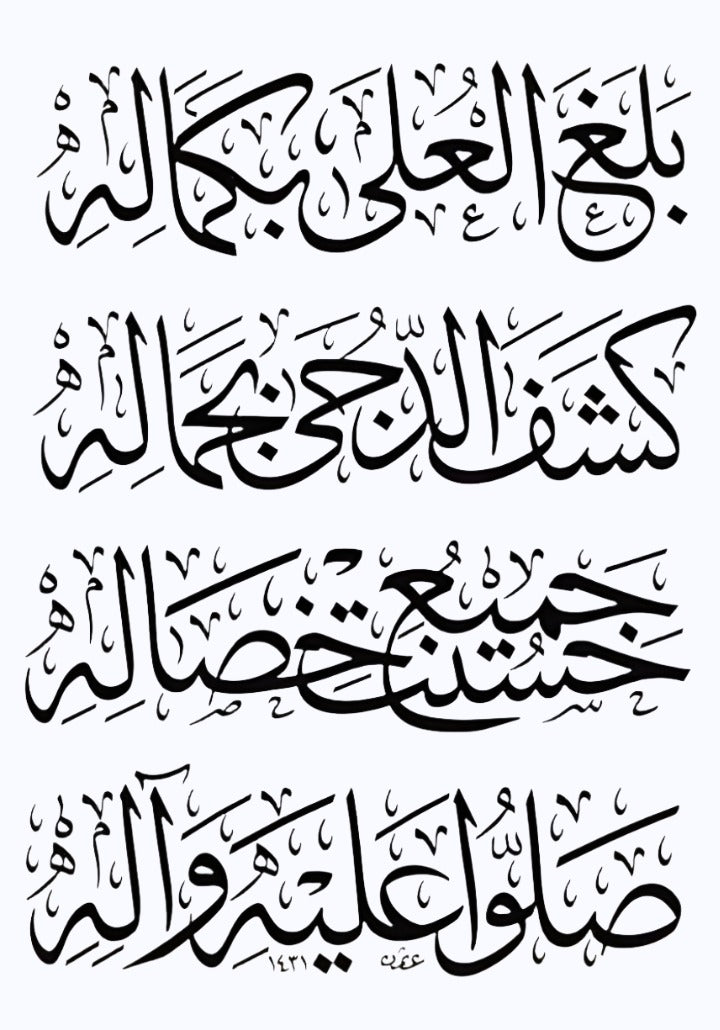 بَلَغَ الْعُلَى بِكَمَالِهِ
كَشَفَ الدُّجَى بِجَمَالِهِ
حَسُنَتْ جَمِيعُ خِصَالِهِ
صَلُّوا عَلَيْهِ وَآلِهِ
١٤٣١